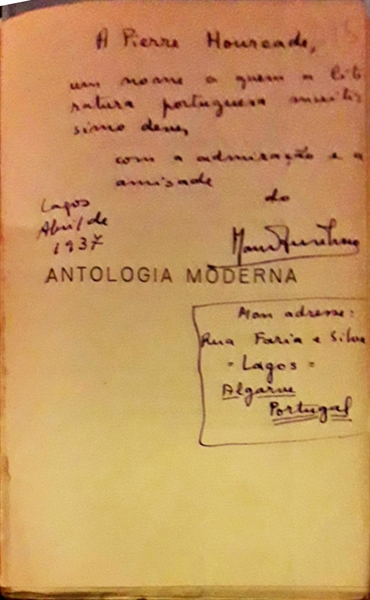 A Pierre Hourcade,
um nome a quem a lite
ratura portuguesa muitis
simo deve,
com a admiração e a
amisade
do
Lagos
Abril de
1937
ANTOLOGIA MODERNA
Mon adresse:
Rua Faria e Silva
= Lagos =
Algarve
Portugal